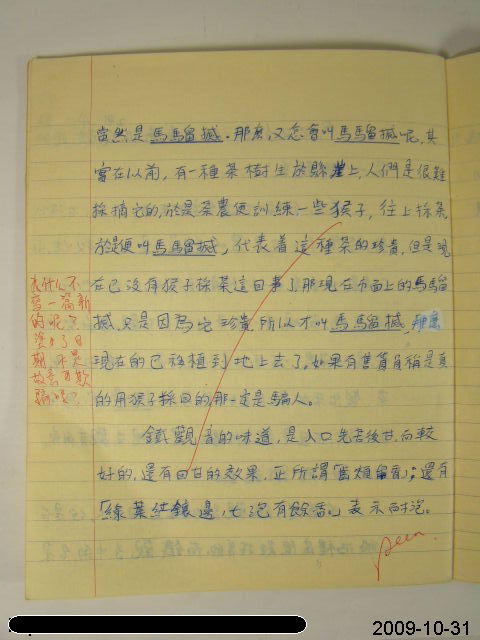 當然是馬騮搣。那麽,又怎會叫馬騮搣呢,其
實在以前,有一種茶樹生於懸崖上,人們是很難
採摘它的,於是茶農便訓練一些猴子,往上採茶,
於是便叫馬騮搣,代表着這種茶的珍貴,但是現
在已沒有猴子採茶這回事了,那現在市面上的馬騮
搣,只是因為它珍貴所以才叫馬騮搣,那麽
現在的已移植到地上去了,如果有售貨員稱是真
的用猴子採回的,那一定是騙人。
鐵觀音的味道,是入口先苦後甘,而較
好的,還有回甘的效果,正所謂「齒頰留香」;還有
「綠葉红鑲邊,七泡有餘香。」表示耐泡。
為什么不
寫一篇新
的呢?
塗了日
期,不是
故意要欺
騙
seen.
2009-10-31